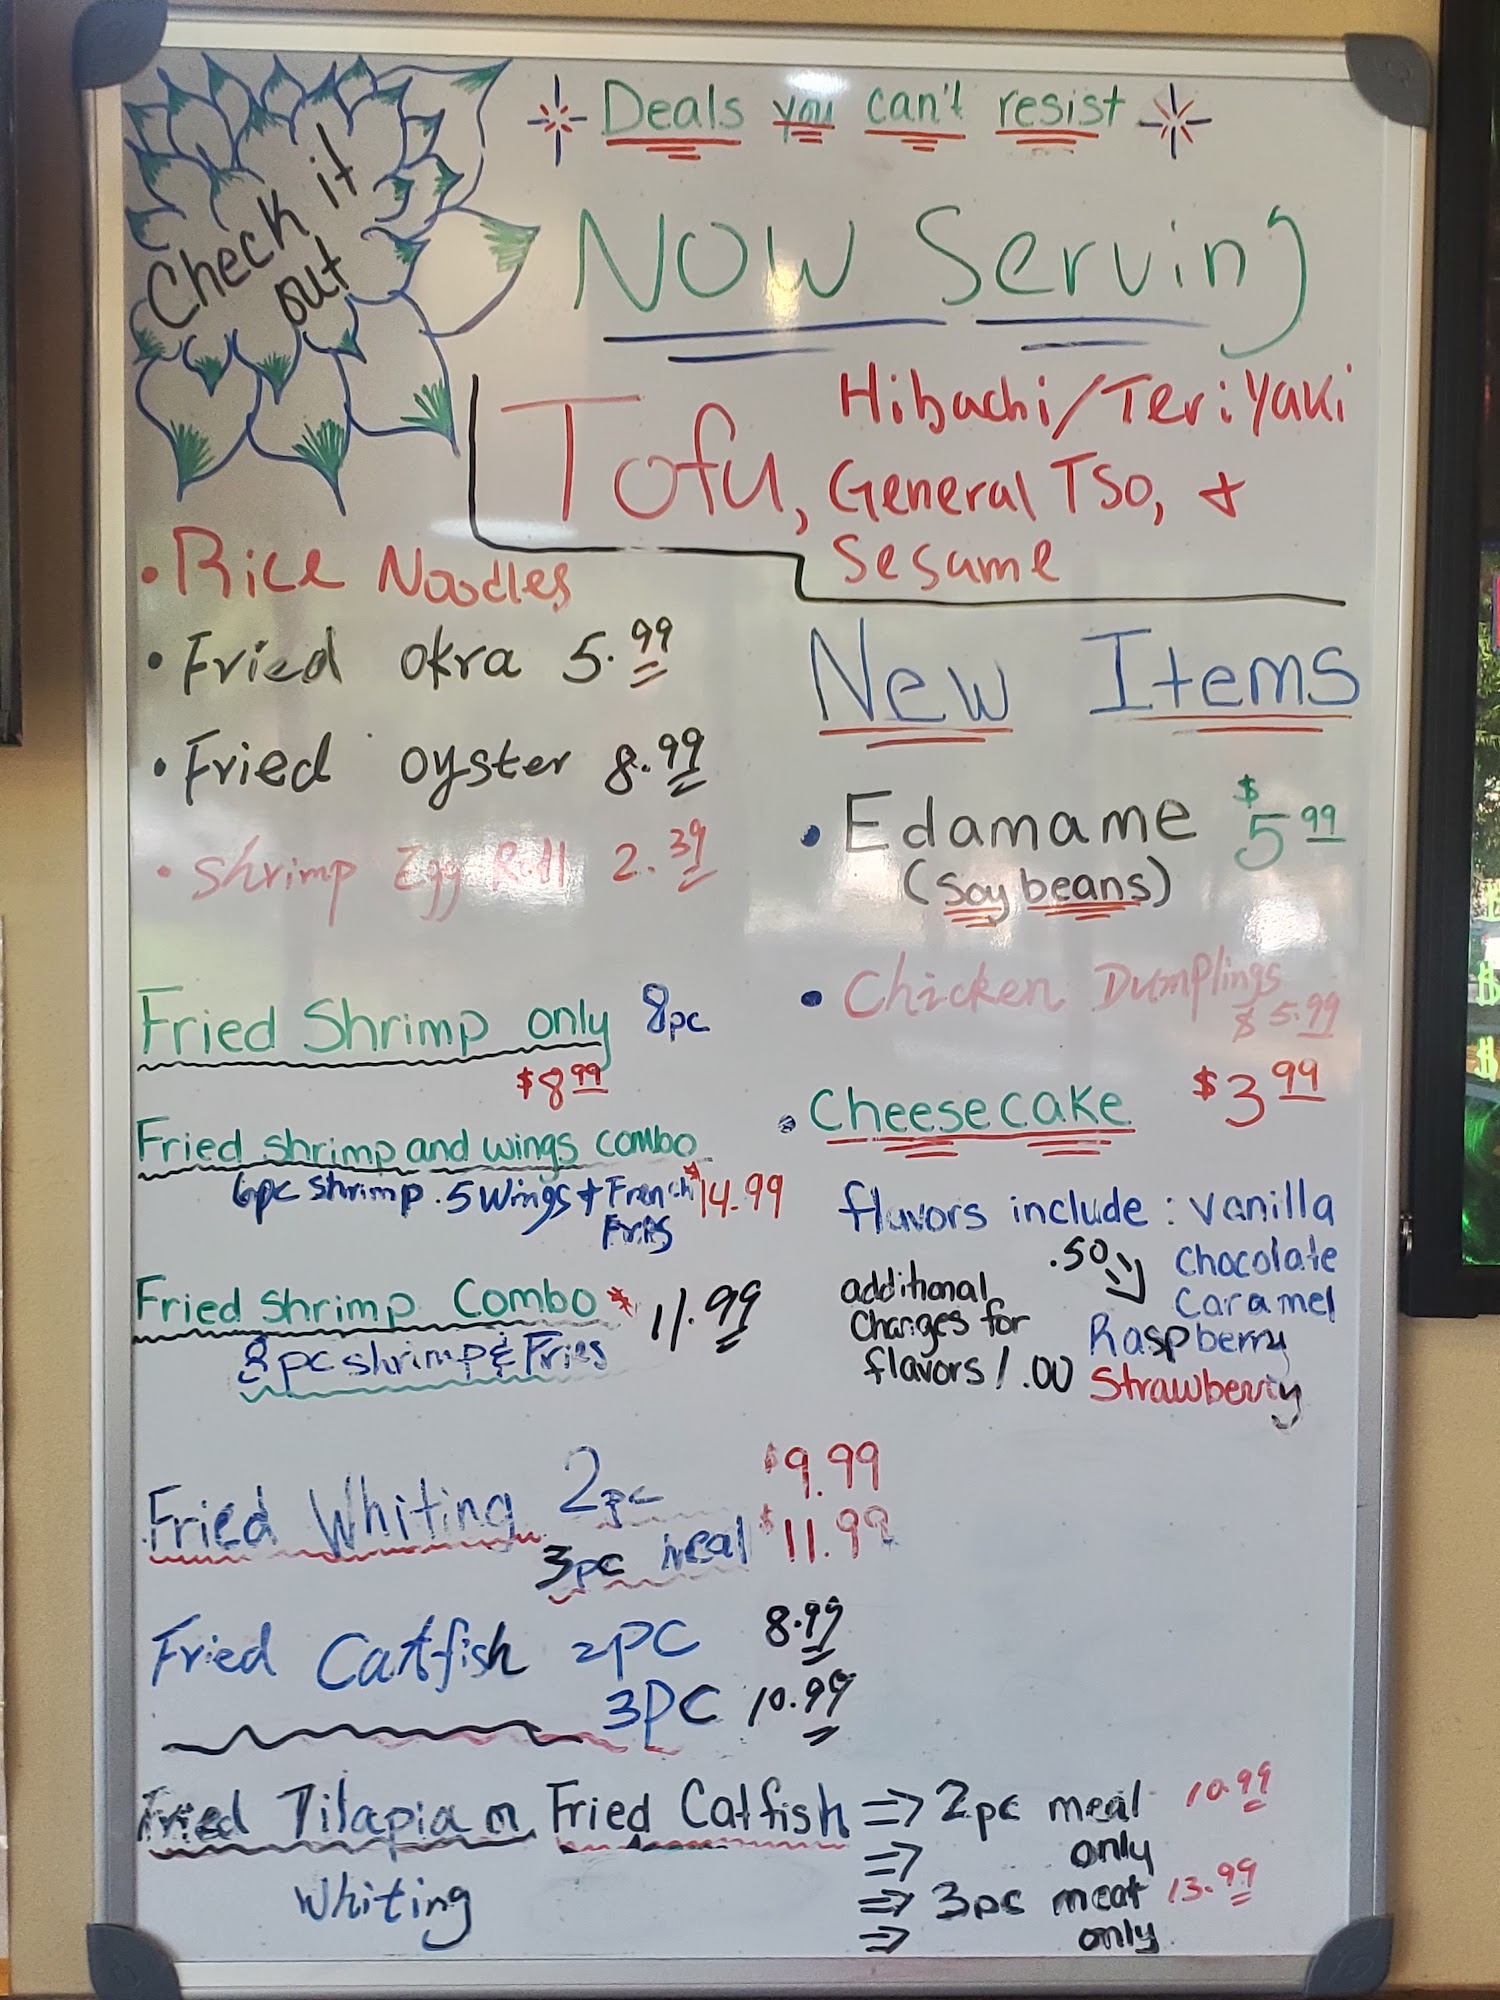 Deals you can't resist
Check it
out
NOW Serving
Tofu, Hibachi/Teriyaki
General TSO, &
Sesame
• Rice Noodles
• Fried okra 5.99
• Fried oyster 8.99
• Shrimp Egg Roll 2.39
Fried Shrimp only 8pc
$8.99
Fried shrimp and wings combo
6pc shrimp. 5 Wings + French $14.99
Fries
Fried shrimp Combo 11.99
8pc shrimp & Fries
New Items
• Edamame $5.99
(soybeans)
• Chicken Dumplings
$5.99
• Cheesecake $3.99
flavors include: vanilla
.50 Chocolate
Caramel
additional
charges for Raspberry
flavors 1.00 Strawberry
Fried Whiting 2pc $9.99
3pc meal $11.99
Fried Catfish 2PC 8.99
3PC 10.99
Fried Tilapia or Fried Catfish ⇒ 2pc meal 10.99
⇒ only
Whiting ⇒ 3pc meat 13.99
⇒ only